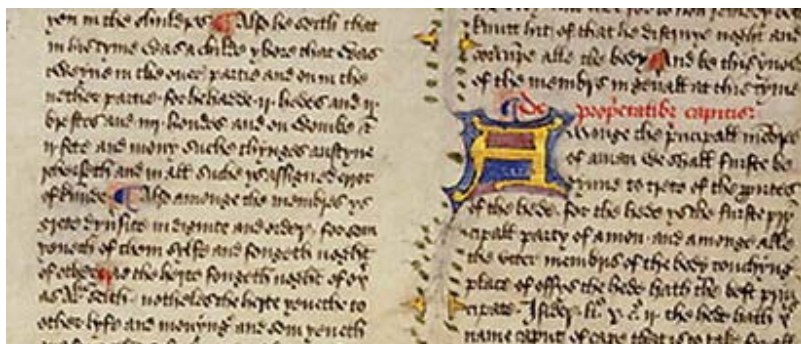 yen in the childres Also he seith that
in his tyme was a childe ybore that was
tweyne in the ouer partie and on in the
nother partie for he hadde ij hedes and ij
brestes and iiij hondes and on wombe &
ij fete and mony suche thynges austyne
reherseth and in all suche ys assigned errot
of kinde Also amonge the membres ys
grete dyuersite in dignite and order for som
yeueth of them selfe and fongeth noght
of other as the herte fongeth noght of oþ
as Al seith notheles the herte yeueth to
other lyfe and mevyng and som yeueth
knitt hit of that he distruye noght and
corrupte alle the body And be this ynow
of the membris in generall at this tyme
de proprietatibus capitis
Amonge the principall membres
of a man we shall furste be
gynne to trete of the parties
of the hede for the hede ys the furste prin
cipall party of a man and amonge alle
the vtter membris of the body touchyng
place of offys the hede hath the best prin
cipate Isider li x c ij the hede hath þe
name caput of cape that is to take for all